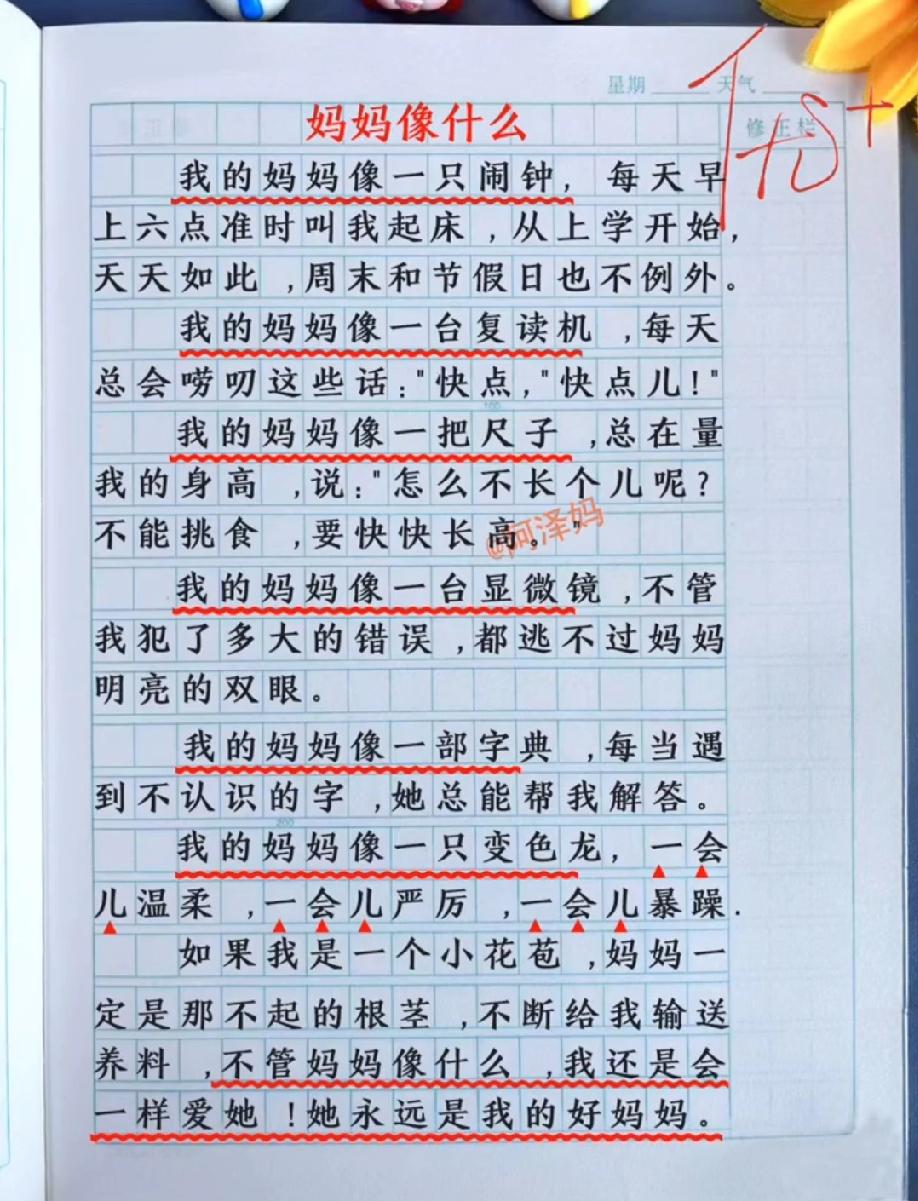 星期 天气
优+
妈妈像什么
修正栏
我的妈妈像一只闹钟，每天早
上六点准时叫我起床，从上学开始，
天天如此，周末和节假日也不例外。
我的妈妈像一台复读机，每天
总会唠叨这些话："快点，"快点儿！"
我的妈妈像一把尺子，总在量
我的身高，说："怎么不长个儿呢？
不能挑食，要快快长高。"
@阿泽妈
我的妈妈像一台显微镜，不管
我犯了多大的错误，都逃不过妈妈
明亮的双眼。
我的妈妈像一部字典，每当遇
到不认识的字，她总能帮我解答。
200
我的妈妈像一只变色龙，一会
儿温柔，一会儿严厉，一会儿暴躁.
如果我是一个小花苞，妈妈一
定是那不起的根茎，不断给我输送
养料，不管妈妈像什么，我还是会
一样爱她！她永远是我的好妈妈。